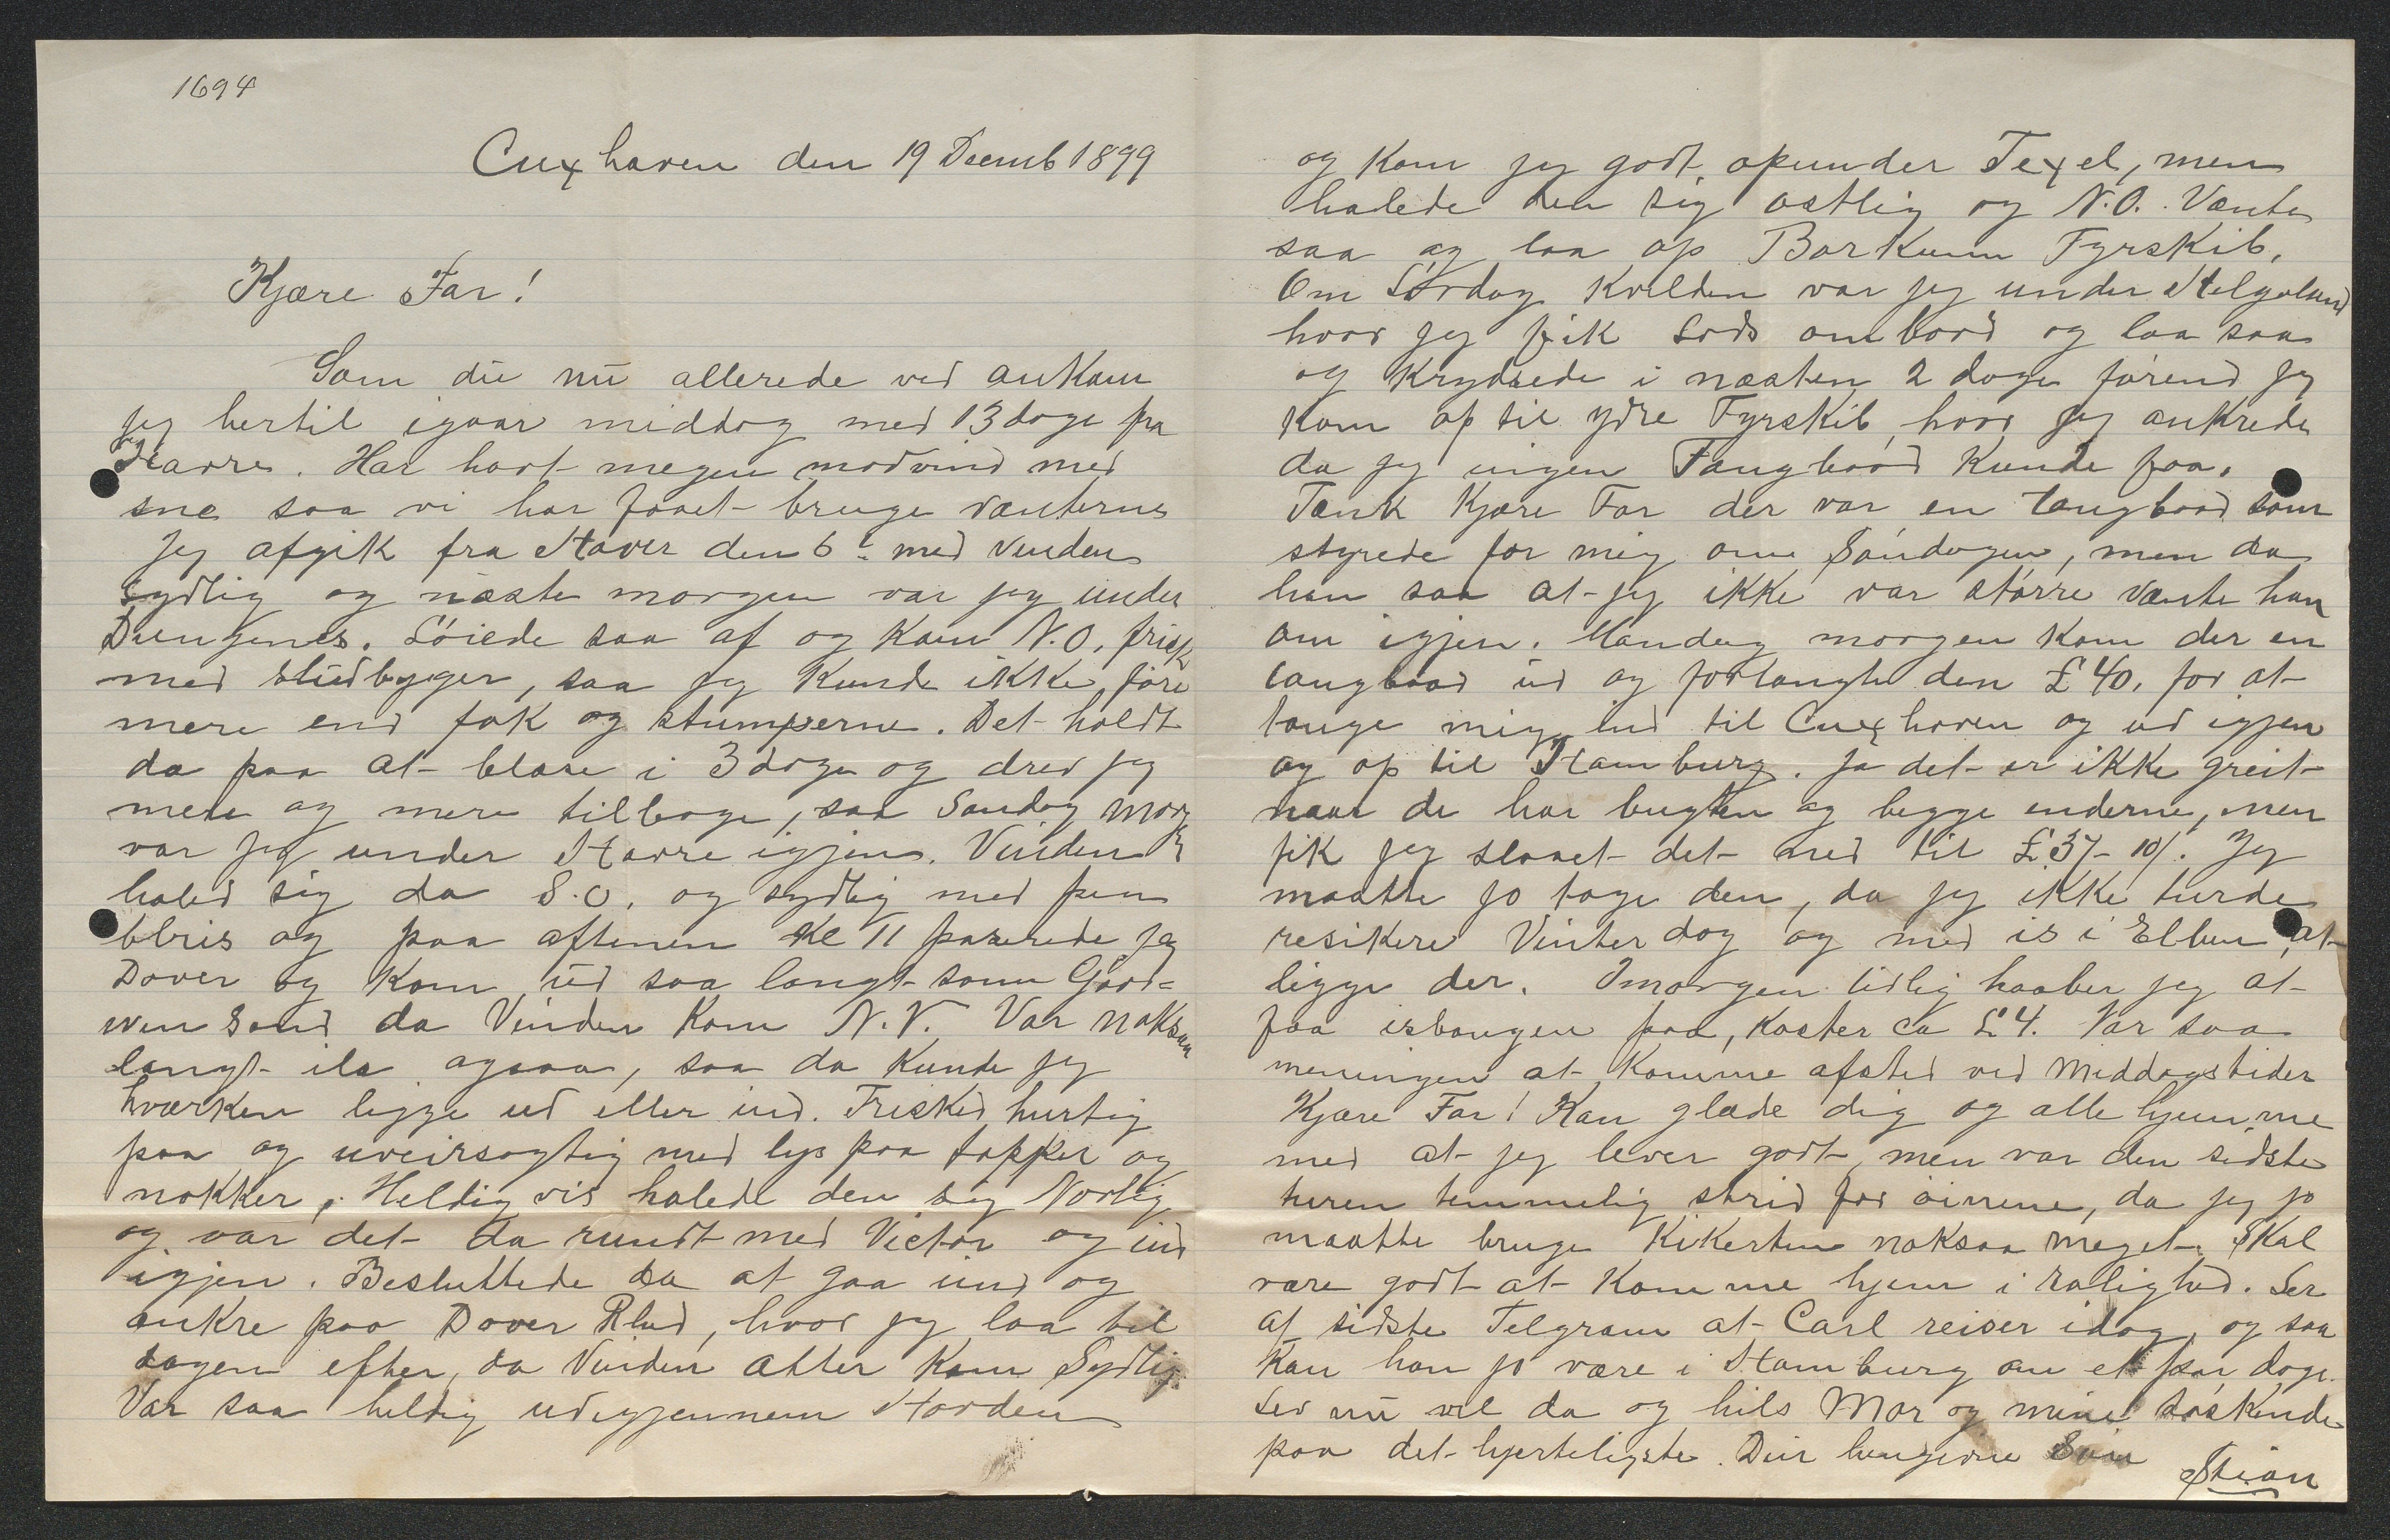 1694
Cuxhaven den 19 Decemb 1899
Kjære Far!
Som du nu allerede ved ankom
jeg hertil igaar middag med 13 dage fra
Havre. Har havt megen modvind med
sne saa vi har faaet bruge vanterne
Jeg afgik fra Haver den 6te med vinden
sydlig og næste morgen var jeg under
Dungenes. Löiede saa af og kom N.O. frisk
med bludbyger, saa jeg kunde ikke före
mere end fok og stumperne. Det holdt
da paa at blæse i 3 dage og drev jeg
mere og mere tilbage, saa Sondag morg
var jeg under Havre igjen. Vinden
haled sig da S.O. og sydlig med pen
bbris og paa aftenen Kl 11 paserede jeg
Dover og kom ud saa langt som Good=
wen Sand da Vinden kom N.V. Var noksaa
langt ile ogsaa, saa da kunde jeg
hværken ligge ud eller ind. Frisked hurtig
paa og uveirsagtig med lys paa topper og
nokker. Heldig vis halede den sig Nordlig
og var det da rundt med Victor og ind
igjen. Besluttede da at gaa ind og
ankre paa Dover Rhed, hvor jeg laa til
dagen efter, da Vinden atter kom Sydlig.
Var saa heldig udigjennem Hovden
og kom jeg godt opunder Texel, men
halede den sig østlig og N.O. Vente
saa og laa op Borkum Fyrskib.
Om Lördag kvelden var jeg under Helgoland
hvor jeg fik Lods ombord og laa saa
og krydsede i næsten 2 dage förend jeg
kom op til ydre Fyrskib, hvor jeg ankrede
da jeg ingen Taugbaad kunde faa.
Tænk Kjære Far der var en taugbaad som
styrede for mig om Söndagen, men da
han saa at jeg ikke var större vænte han
om igjen. Mandag morgen kom der en
taugbaad ud og forlangte den £ 40. for at
tauge mig ind til Cuxhaven og ud igjen
og op til Hamburg. Ja det er ikke greit
naar de har bugten og begge enderne, men
fik jeg slaaet det ned til £ 37-10/. Jeg
maatte jo tage den, da jeg ikke turde
resikere Vinter dag og med is i Elben at
ligge der. Imorgen tidlig haaber jeg at
faa isbaugen paa, koster ca £ 4. Var saa
meningen at komme afsted ved middagstider
Kjære Far! Kan glæde dig og alle hjemme
med at jeg lever godt, men var den sidste
turen temmelig strid for öinene, da jeg jo
maatte bruge Kikerten noksaa meget. Skal
være godt at komme hjem i rolighed. Ser
af sidste Telgram at Carl reiser idag, og saa
kan han jo være i Hamburg om et par dage.
Lev nu vel da og hils Mor og mine söskende
paa det hjerteligste. Din hengivne Sön
Stian